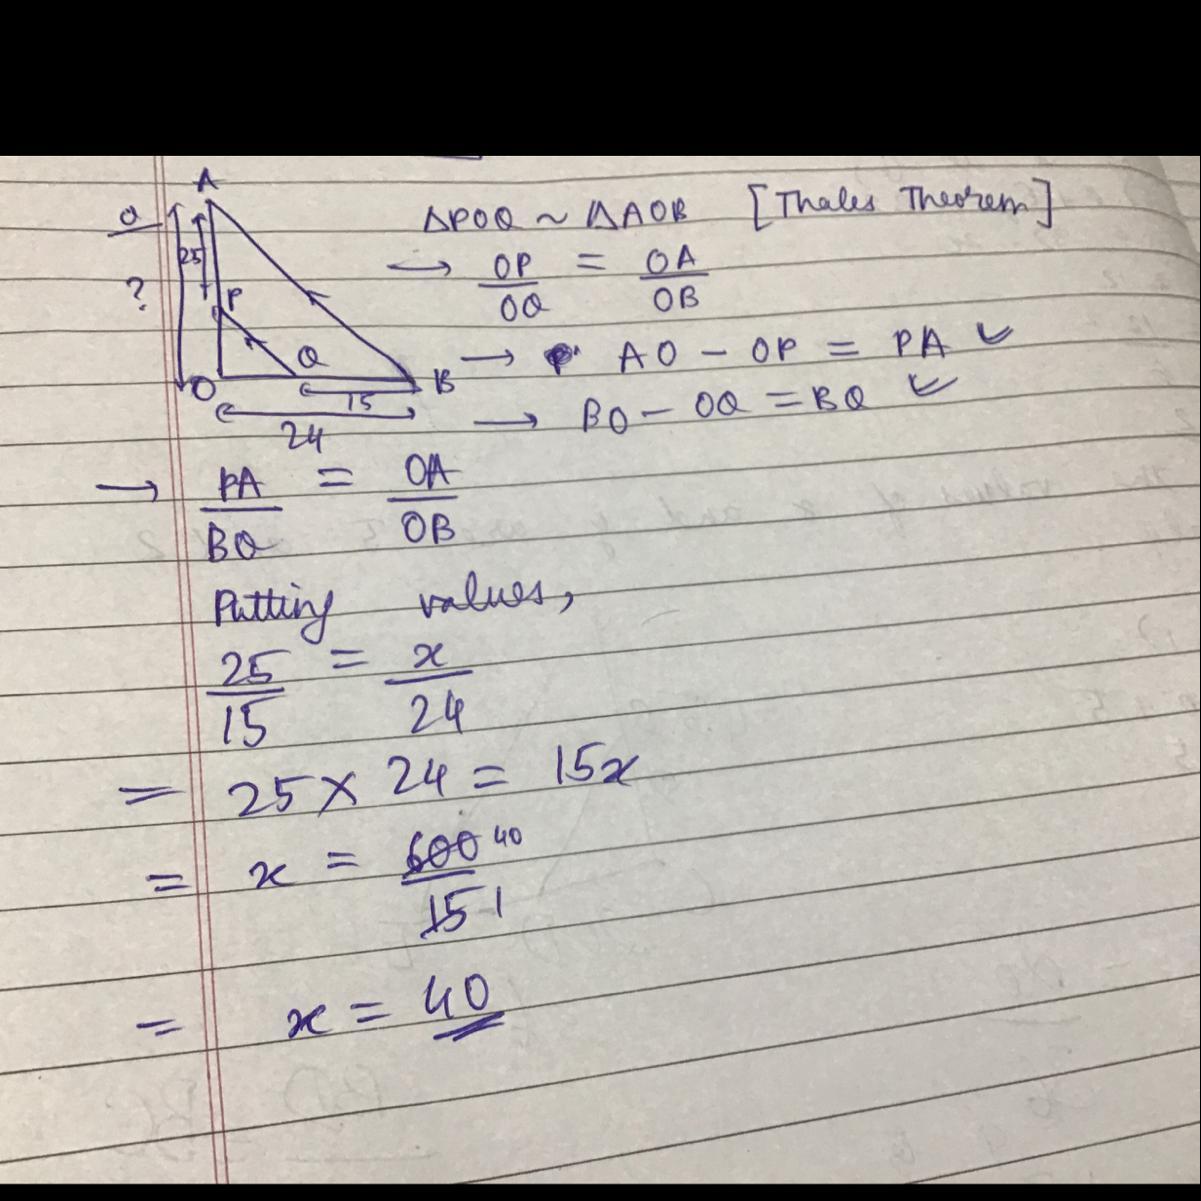 A
Q
25
?
P
Q
O
B
15
24
ΔPOQ ~ ΔAOB [Thales Theorem]
→ OP/OQ = OA/OB
→ AO - OP = PA ✓
→ BO - OQ = BQ ✓
→ PA/BQ = OA/OB
Putting values,
25/15 = x/24
= 25 × 24 = 15x
= x = 600 40 / 15 1
= x = 40